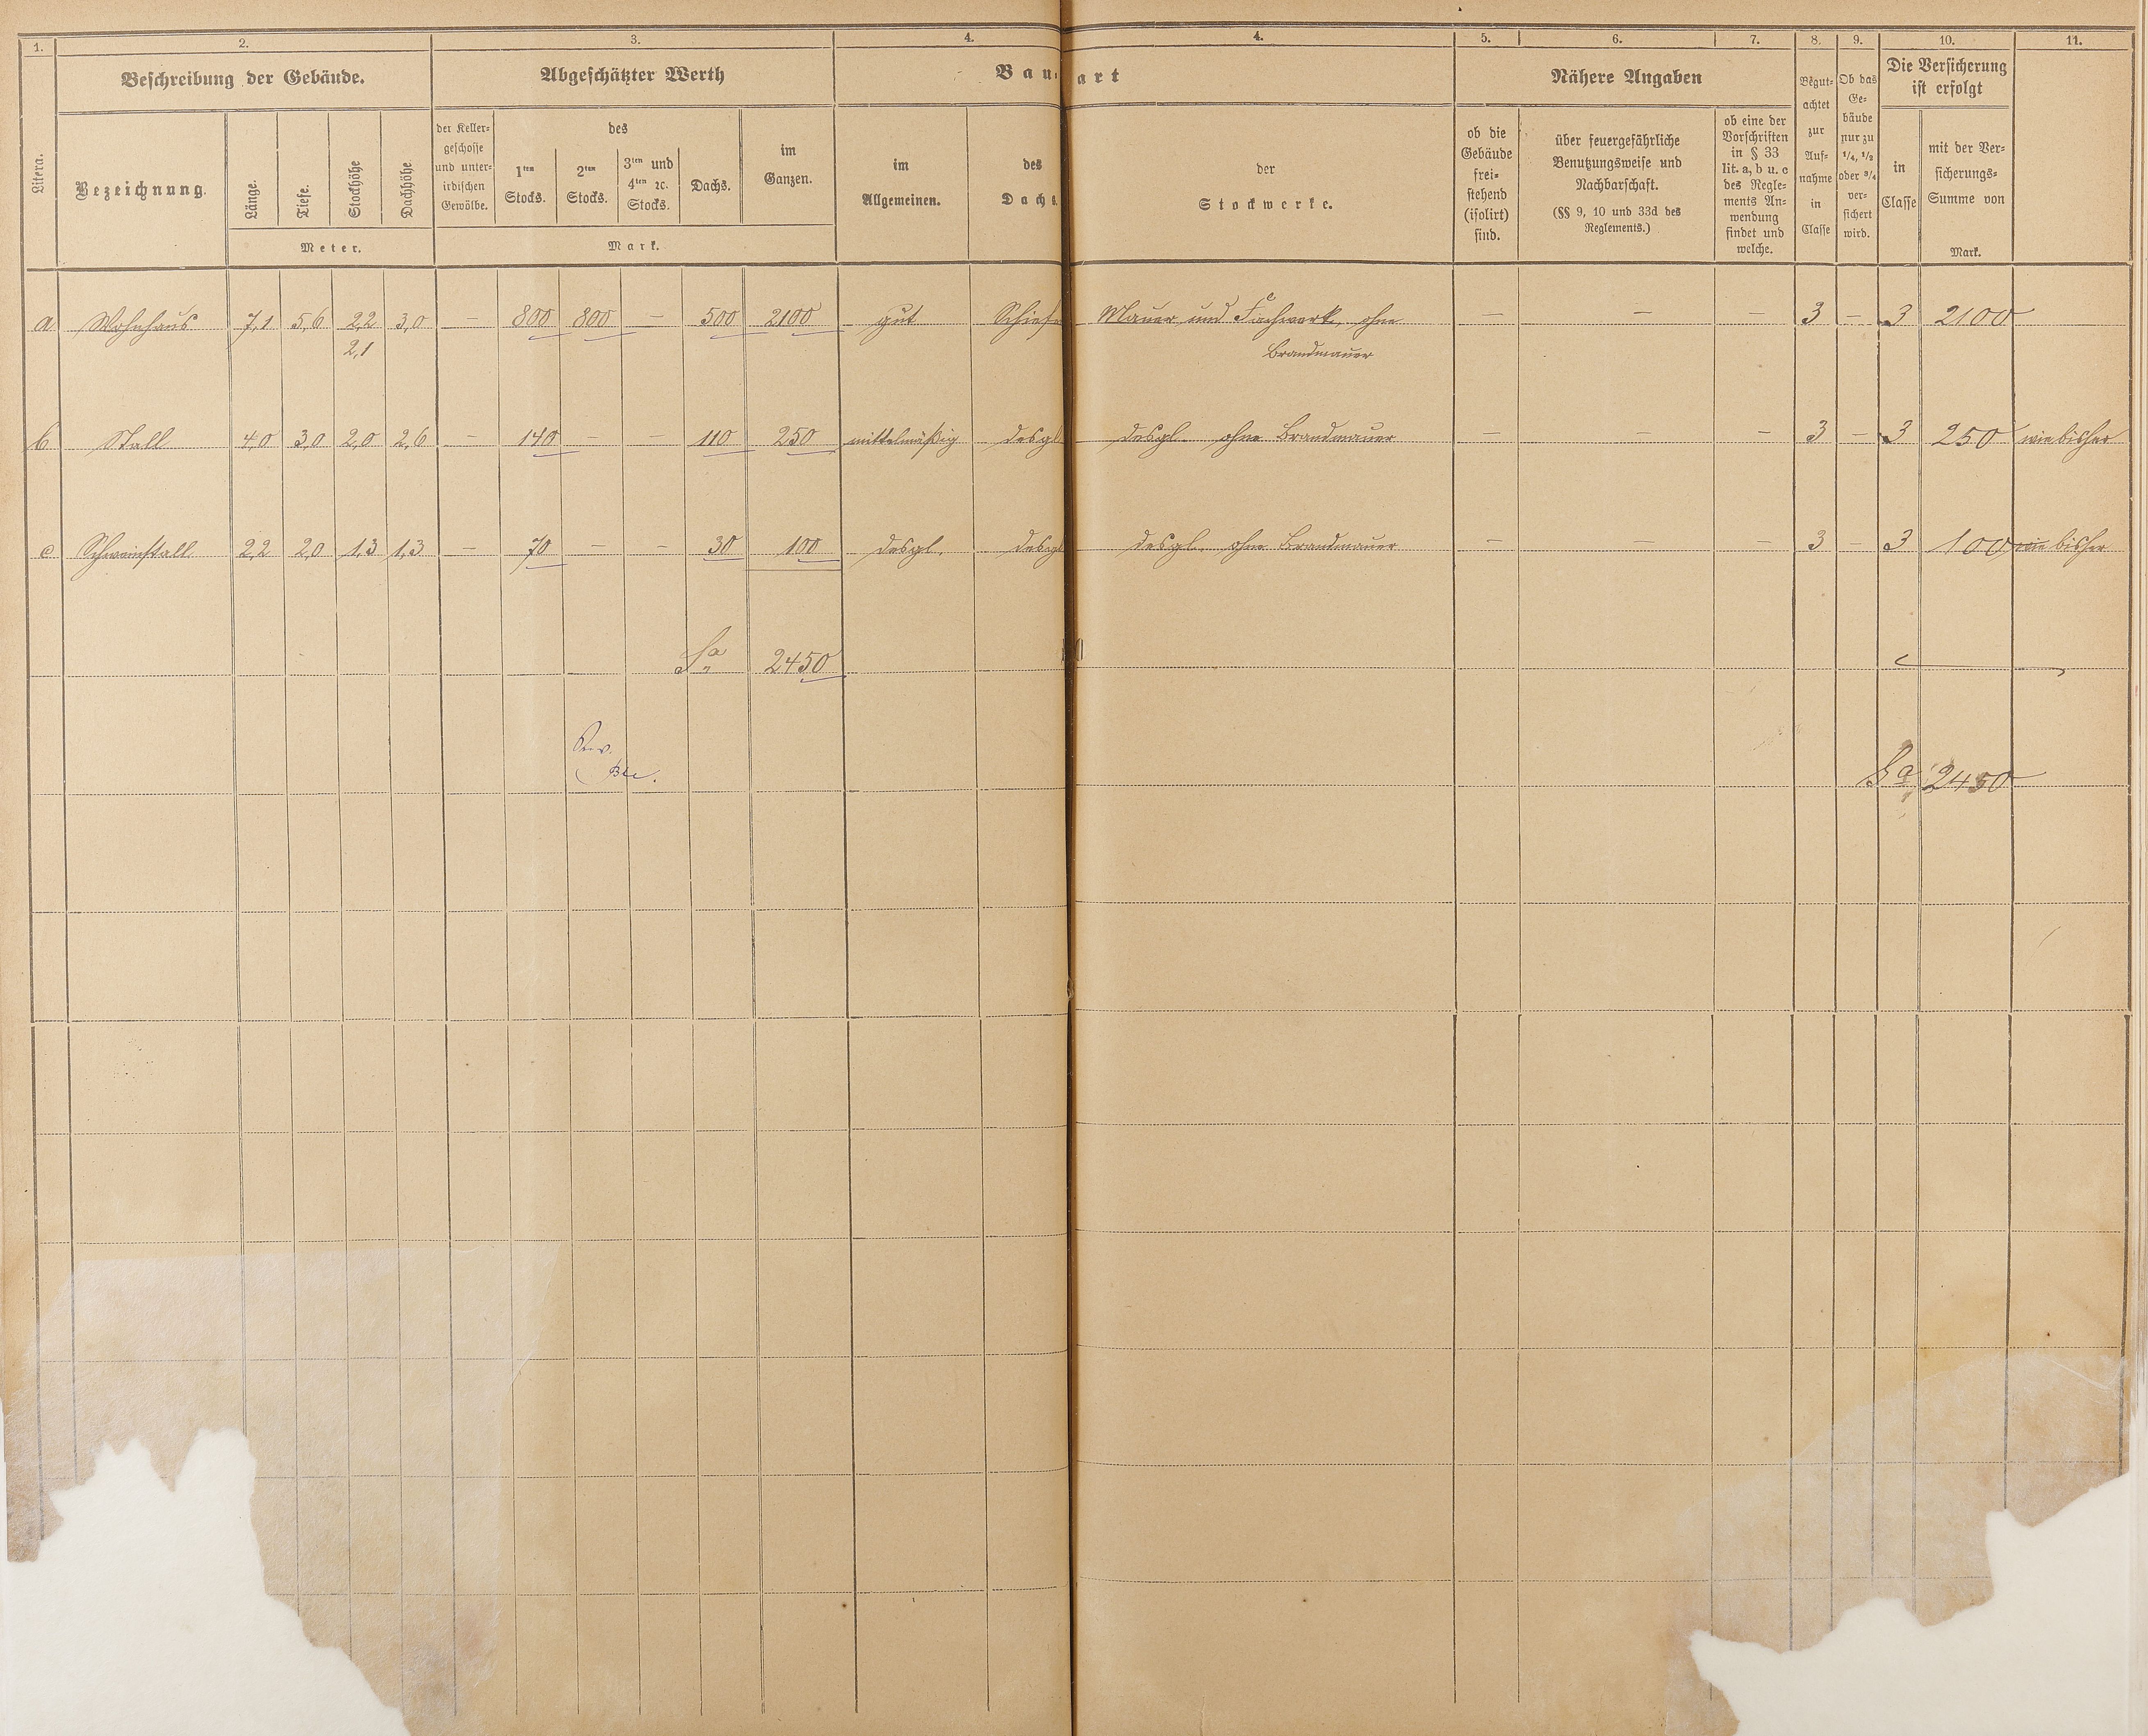 1. 2. 3. 4. 4. 5. 6. 7. 8. 9. 10. 11.
Beschreibung der Gebäude. Abgeschätzter Werth Bau- art Nähere Angaben
Die Versicherung
ist erfolgt
Litera.
Bezeichnung.
Länge.
Tiefe.
Stockhöhe
Dachhöhe
Meter.
der Keller-
geschosse
und unter-
irdischen
Gewölbe.
des
1ten
Stocks.
2ten
Stocks.
3ten und
4ten ꝛc.
Stocks.
Dachs.
im
Ganzen.
Mark.
im
Allgemeinen.
des
Dachs.
der
Stockwerke.
ob die
Gebäude
frei-
stehend
(isolirt)
sind.
über feuergefährliche
Benutzungsweise und
Nachbarschaft.
(§§ 9, 10 und 33d des
Reglements.)
ob eine der
Vorschriften
in § 33
lit. a, b u. c
des Regle-
ments An-
wendung
findet und
welche.
Begut-
achtet
zur
Auf-
nahme
in
Classe
Ob das
Ge-
bäude
nur zu
1/4, 1/2
oder 3/4
ver-
sichert
wird.
in
Classe
mit der Ver-
sicherungs-
Summe von
Mark.
a Wohnhaus 7,1 5,6 2,2 3,0 — 800 800 — 500 2100 gut Schief Mauer und Fachwerk, ohne — — — 3 — 3 2100
2,1 Brandmauer
b Stall 4,0 3,0 2,0 2,6 — 140 — — 110 250 mittelmäßig desgl desgl. ohne Brandmauer — — — 3 — 3 250 wie bisher
c Schweinstall 2,2 2,0 1,3 1,3 — 70 — — 30 100 desgl. desgl desgl. ohne Brandmauer — — — 3 — 3 100 wie bisher
Sa 2450
Rev.
Sa 2450